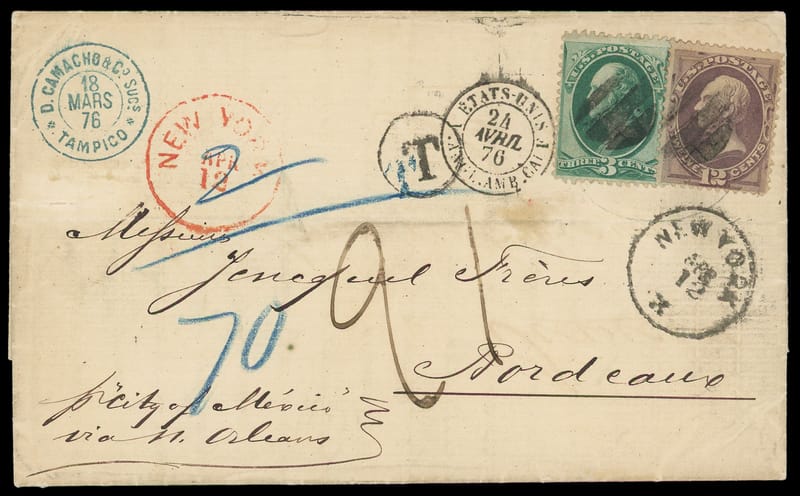 D. CAMACHO & Co. SUCS.
18
MARS
76
* TAMPICO *
NEW YORK
APR
12
2
T
ETATS-UNIS
24
AVRIL
76
ANGL. AMB. CAL
U.S. POSTAGE
THREE 3 CENTS
U.S. POSTAGE
TWELVE 12 CENTS
NEW YORK
12
Messieurs
Frères
21
70
Bordeaux
pr "City of Mexico"
via N. Orleans